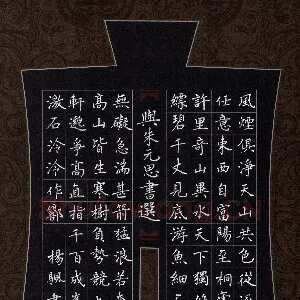 風煙俱淨天山共色從
任意東西自富陽至桐
許里奇山異水天下獨
縹碧千丈見底游魚細
與朱元思書選
無礙急湍甚箭猛浪若
高山皆生寒樹負勢競
軒邈爭高直指千百成
激石泠泠作響 楊